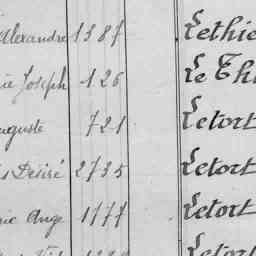 Alexandre 1385 Lethie
ie Joseph 126 Le Thi
uguste 721 Letort
s Désiré 2735 Letort
rie Ange 1777 Letort
Letort